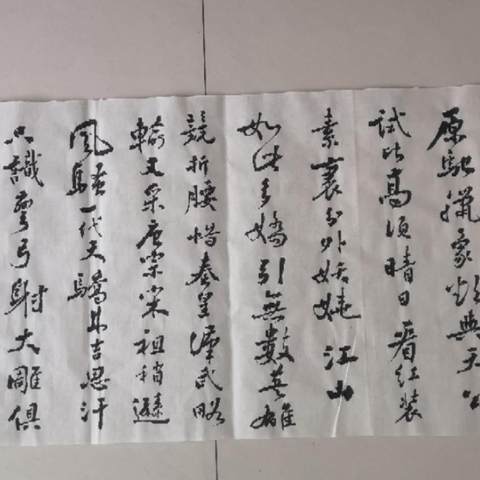 原馳蠟象欲與天公
試比高須晴日看红装
素裹分外妖嬈江山
如此多嬌引無數英雄
競折腰惜秦皇漢武略
輸文采唐宗宋祖稍遜
風騷一代天驕成吉思汗
只識彎弓射大雕俱